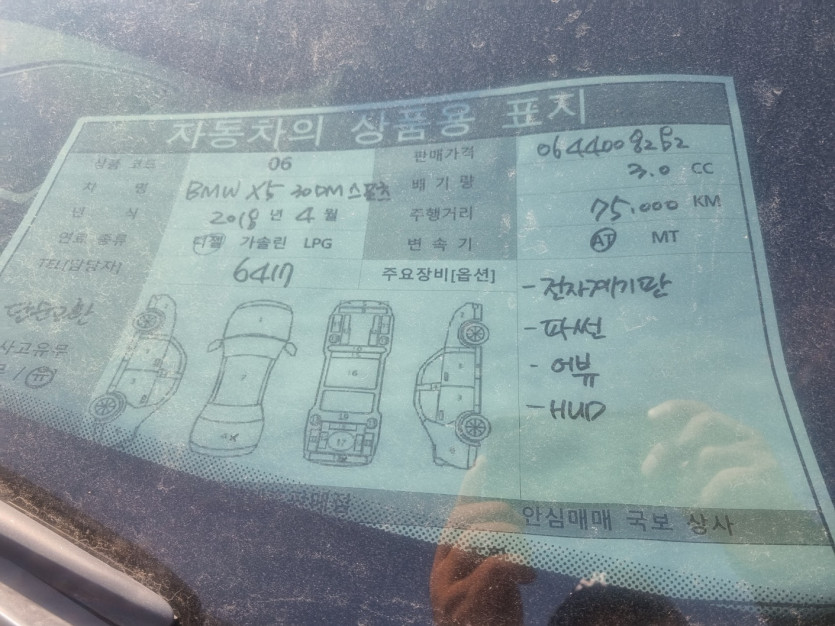 자동차의 상품용 표지
상품 코드 06 판매가격
차 명 BMW X5 30D M 스포츠 배 기 량 3.0 CC
년 식 2018 년 4 월 주행거리 75,000 KM
연료 종류 디젤 가솔린 LPG 변 속 기 AT MT
TEL[담당자] 6417 주요장비[옵션]
- 전자계기판
- 파썬
- 어뷰
- HUD
단순교환
사고유무
/ 유
X
안심매매 국보 상사